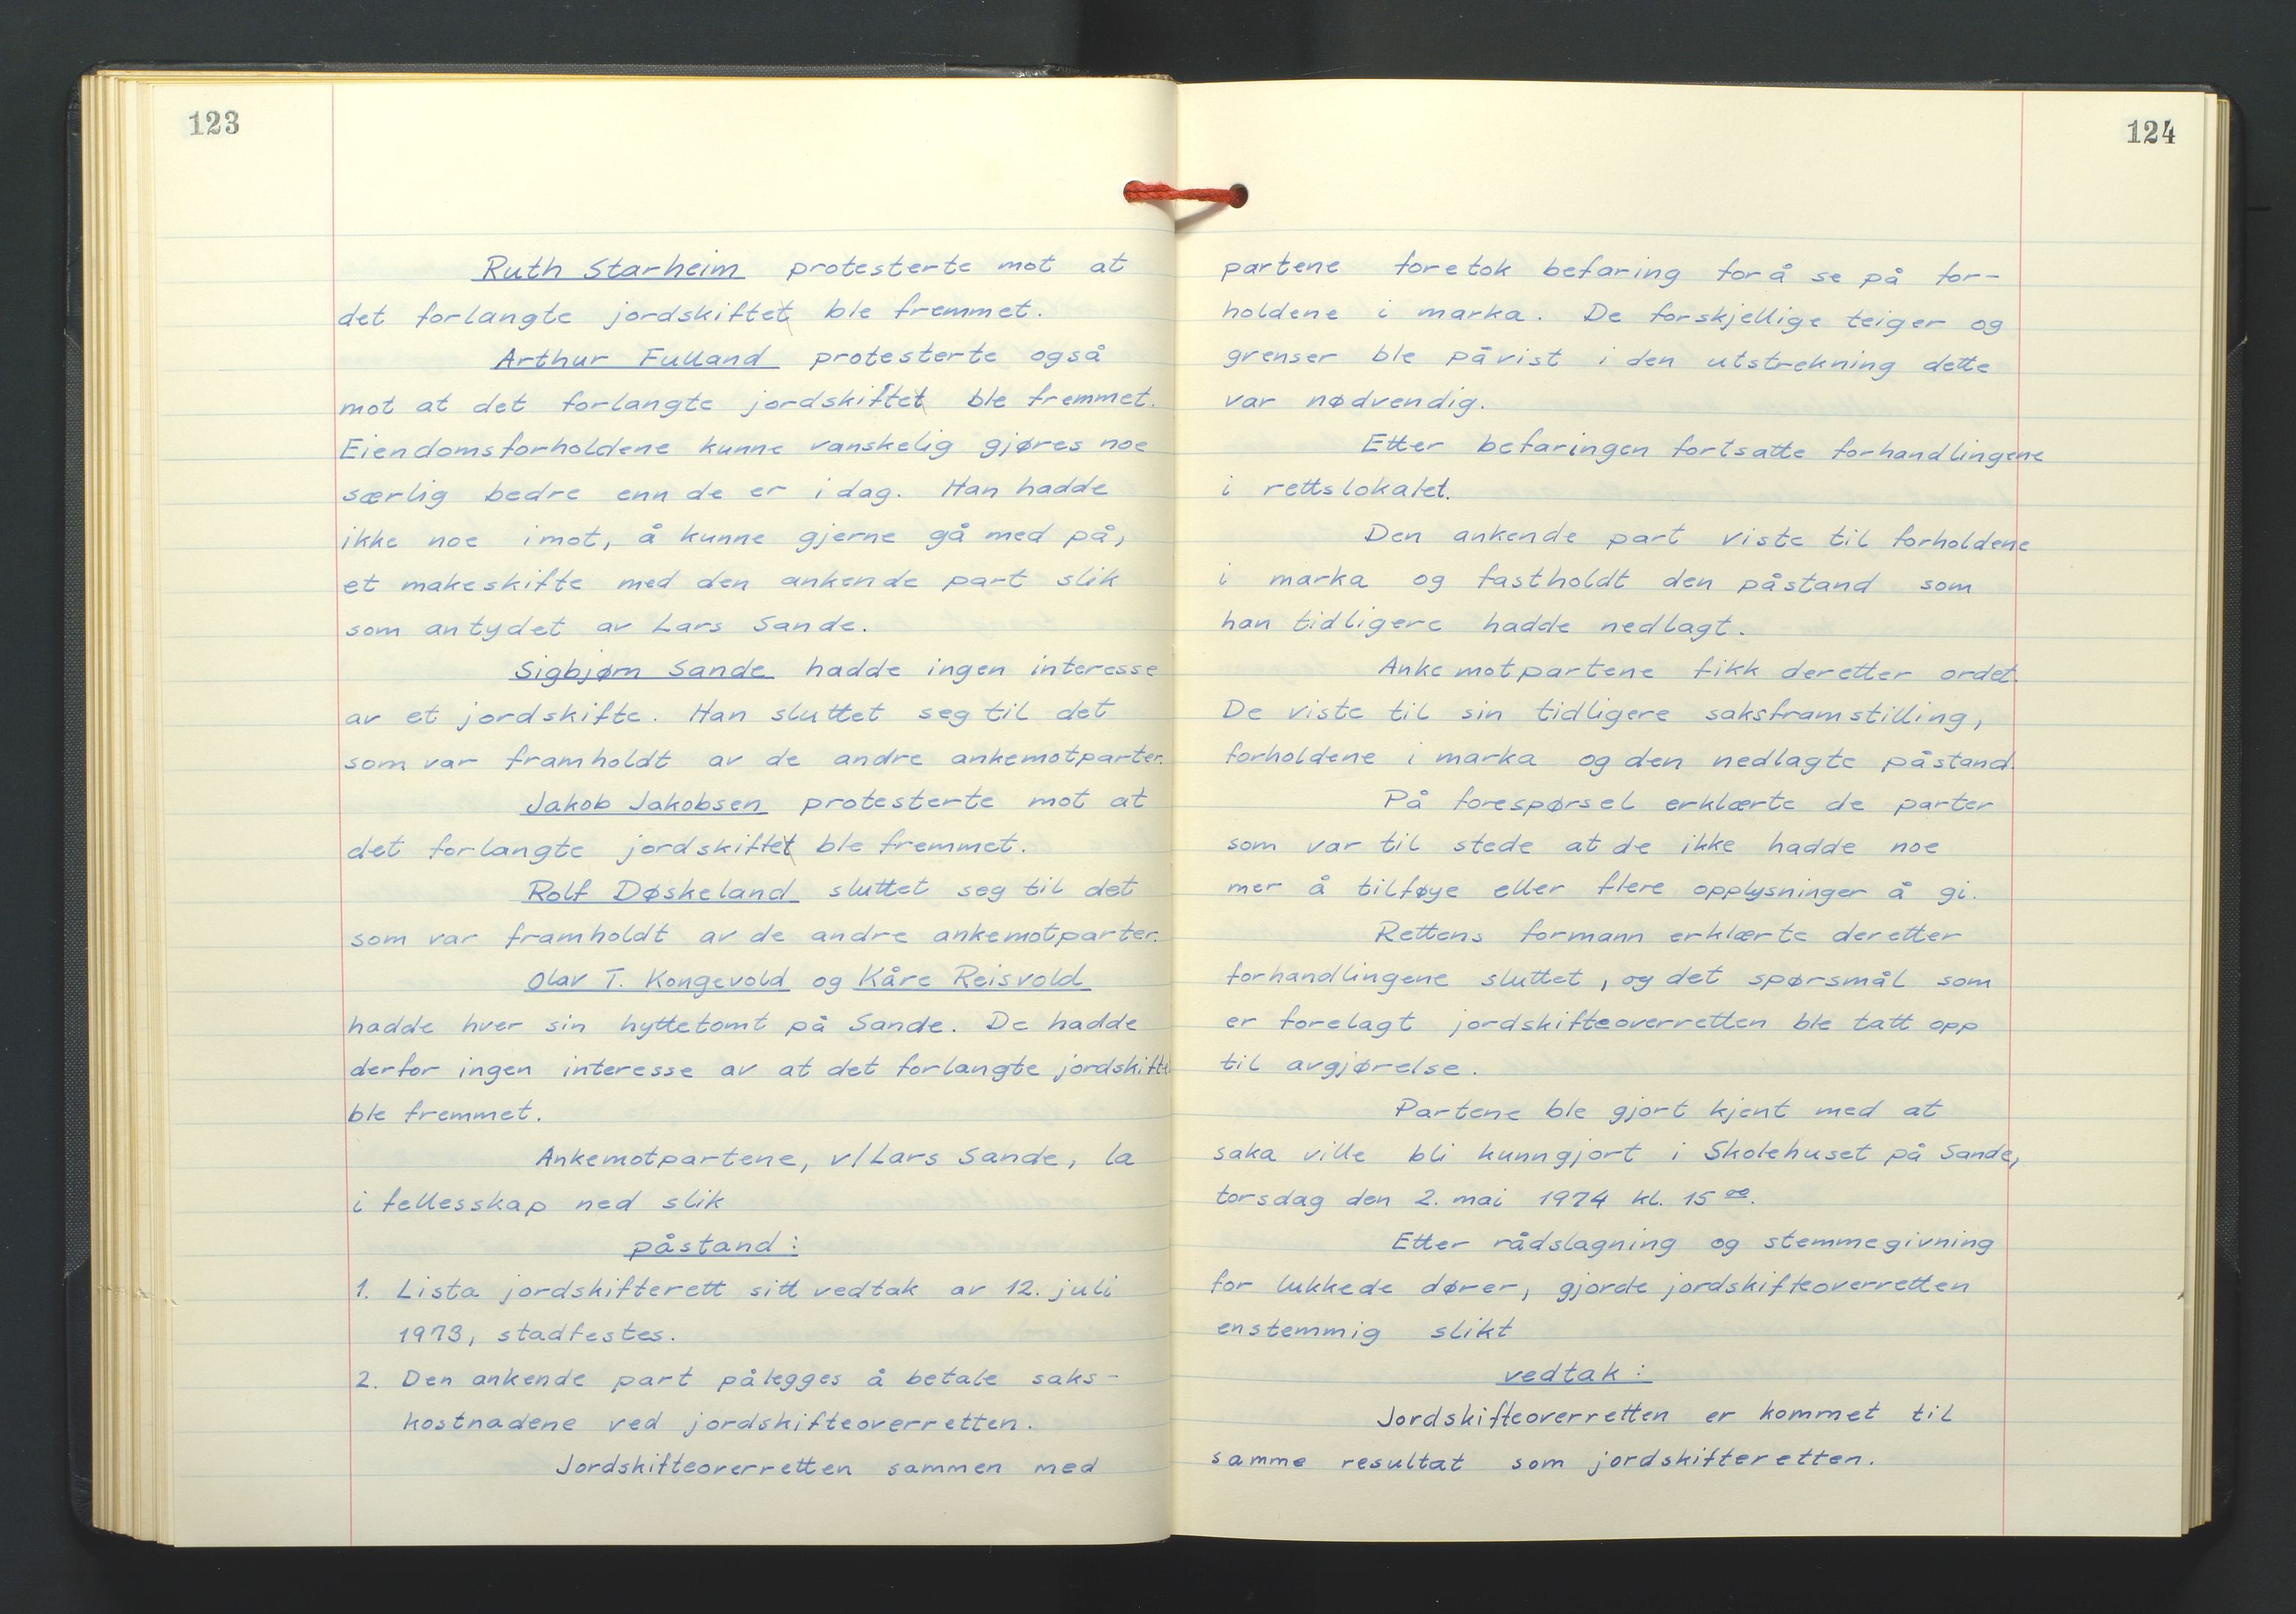 123
Ruth Starheim protesterte mot at
det forlangte jordskiftet ble fremmet.
Arthur Fulland protesterte også
mot at det forlangte jordskiftet ble fremmet.
Eiendomsforholdene kunne vanskelig gjøres noe
særlig bedre enn de er idag. Han hadde
ikke noe imot, å kunne gjerne gå med på,
et makeskifte med den ankende part slik
som antydet av Lars Sande.
Sigbjørn Sande hadde ingen interesse
av et jordskifte. Han sluttet seg til det
som var framholdt av de andre ankemotparter.
Jakob Jakobsen protesterte mot at
det forlangte jordskiftet ble fremmet.
Rolf Døskeland sluttet seg til det
som var framholdt av de andre ankemotparter.
Olav T. Kongevold og Kåre Reisvold
hadde hver sin hyttetomt på Sande. De hadde
derfor ingen interesse av at det forlangte jordskifte
ble fremmet.
Ankemotpartene, v/Lars Sande, la
i fellesskap ned slik
påstand:
1. Lista jordskifterett sitt vedtak av 12. juli
1973, stadfestes.
2. Den ankende part pålegges å betale saks-
kostnadene ved jordskifteoverretten.
Jordskifteoverretten sammen med
124
partene foretok befaring for å se på for-
holdene i marka. De forskjellige teiger og
grenser ble påvist i den utstrekning dette
var nødvendig.
Etter befaringen fortsatte forhandlingene
i rettslokalet.
Den ankende part viste til forholdene
i marka og fastholdt den påstand som
han tidligere hadde nedlagt.
Ankemotpartene fikk deretter ordet.
De viste til sin tidligere saksframstilling,
forholdene i marka og den nedlagte påstand.
På forespørsel erklærte de parter
som var til stede at de ikke hadde noe
mer å tilføye eller flere opplysninger å gi.
Rettens formann erklærte deretter
forhandlingene sluttet, og det spørsmål som
er forelagt jordskifteoverretten ble tatt opp
til avgjørelse.
Partene ble gjort kjent med at
saka ville bli kunngjort i Skolehuset på Sande,
torsdag den 2. mai 1974 kl. 15 00.
Etter rådslagning og stemmegivning
for lukkede dører, gjorde jordskifteoverretten
enstemmig slikt
vedtak:
Jordskifteoverretten er kommet til
samme resultat som jordskifteretten.